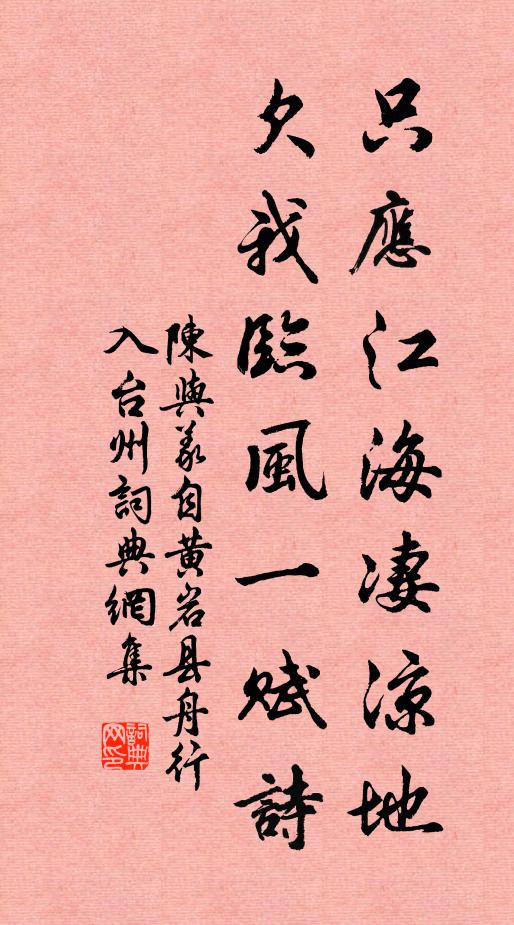 只應江海凄涼地
欠我臨風一賦詩
陳與義自黃岩县舟行
入台州詞典網集
詞典
网印